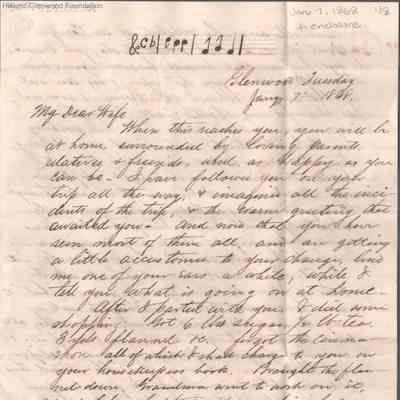 Historic Glenwood Foundation
Jan 7, 1868 1/8
Glenwood Tuesday
Jany 7th 1868.
My Dear Wife
When this reaches you, you will be
at home surrounded by loving parents,
relatives & friends, and as happy as you
can be. I have followed you on your
trip all the way, & imagined all the inci-
dents of the trip, & the warm greeting that
awaited you. And now that you have
seen most of them all, and are getting
a little accustomed to your change, lend
me one of your ears a while, while I
tell you what is going on at home.
After I parted with you I did some
shopping. Got 6 lbs sugar, lb tea,
3 yds flannel &c. forgot the
all of which I shall charge to you on
your housekeepers book. Brought the flan-
nel down, Grandma went to work on it,